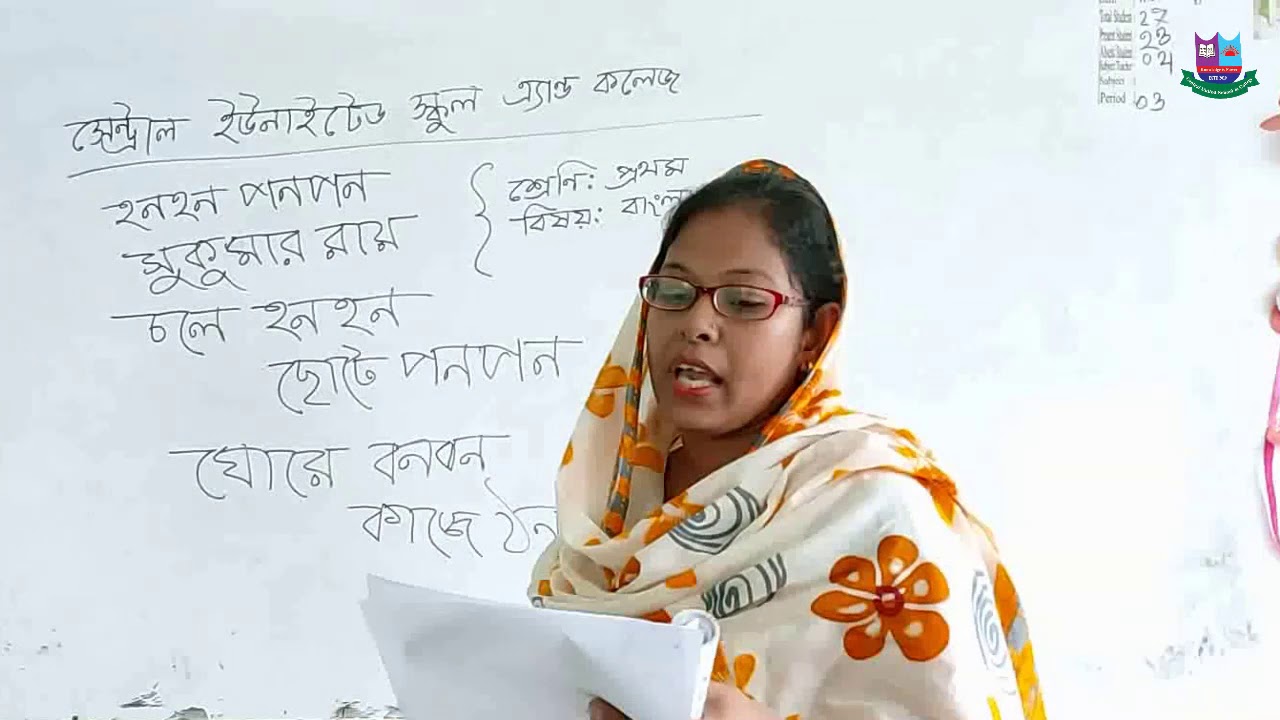 সেন্ট্রাল ইউনাইটেড স্কুল এ্যান্ড কলেজ
হনহন পনপন
সুকুমার রায়
শ্রেণি: প্রথম
বিষয়:
চলে হনহন
ছোটে পনপন
ঘোরে বনবন
কাজে
Total Student 27
Present Student 23
Absent Student 04
Subject Teacher
Subject :
Period 03